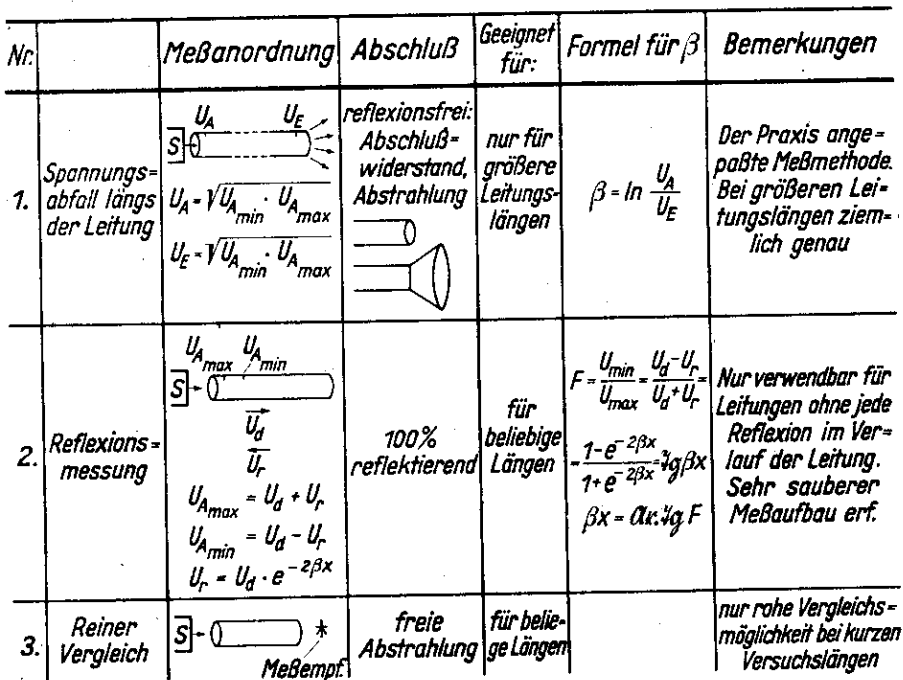 Nr. Meßanordnung Abschluß Geeignet für: Formel für β Bemerkungen
1.
Spannungs=
abfall längs
der Leitung
U_A U_E
S
U_A = √U_A_min · U_A_max
U_E = √U_A_min · U_A_max
reflexionsfrei:
Abschluß=
widerstand,
Abstrahlung
nur für
größere
Leitungs=
längen
β = ln U_A/U_E
Der Praxis ange=
paßte Meßmethode.
Bei größeren Lei=
tungslängen ziem=
lich genau
2.
Reflexions=
messung
U_A_max U_A_min
S
U_d
U_r
U_A_max = U_d + U_r
U_A_min = U_d - U_r
U_r = U_d · e^-2βx
100%
reflektierend
für
beliebige
Längen
F = U_min/U_max = U_d-U_r/U_d+U_r =
= 1-e^-2βx/1+e^-2βx = Tg βx
βx = Ar. Tg F
Nur verwendbar für
Leitungen ohne jede
Reflexion im Ver=
lauf der Leitung.
Sehr sauberer
Meßaufbau erf.
3.
Reiner
Vergleich
S
Meßempf.
freie
Abstrahlung
für belie-
ge Längen
nur rohe Vergleichs=
möglichkeit bei kurzen
Versuchslängen